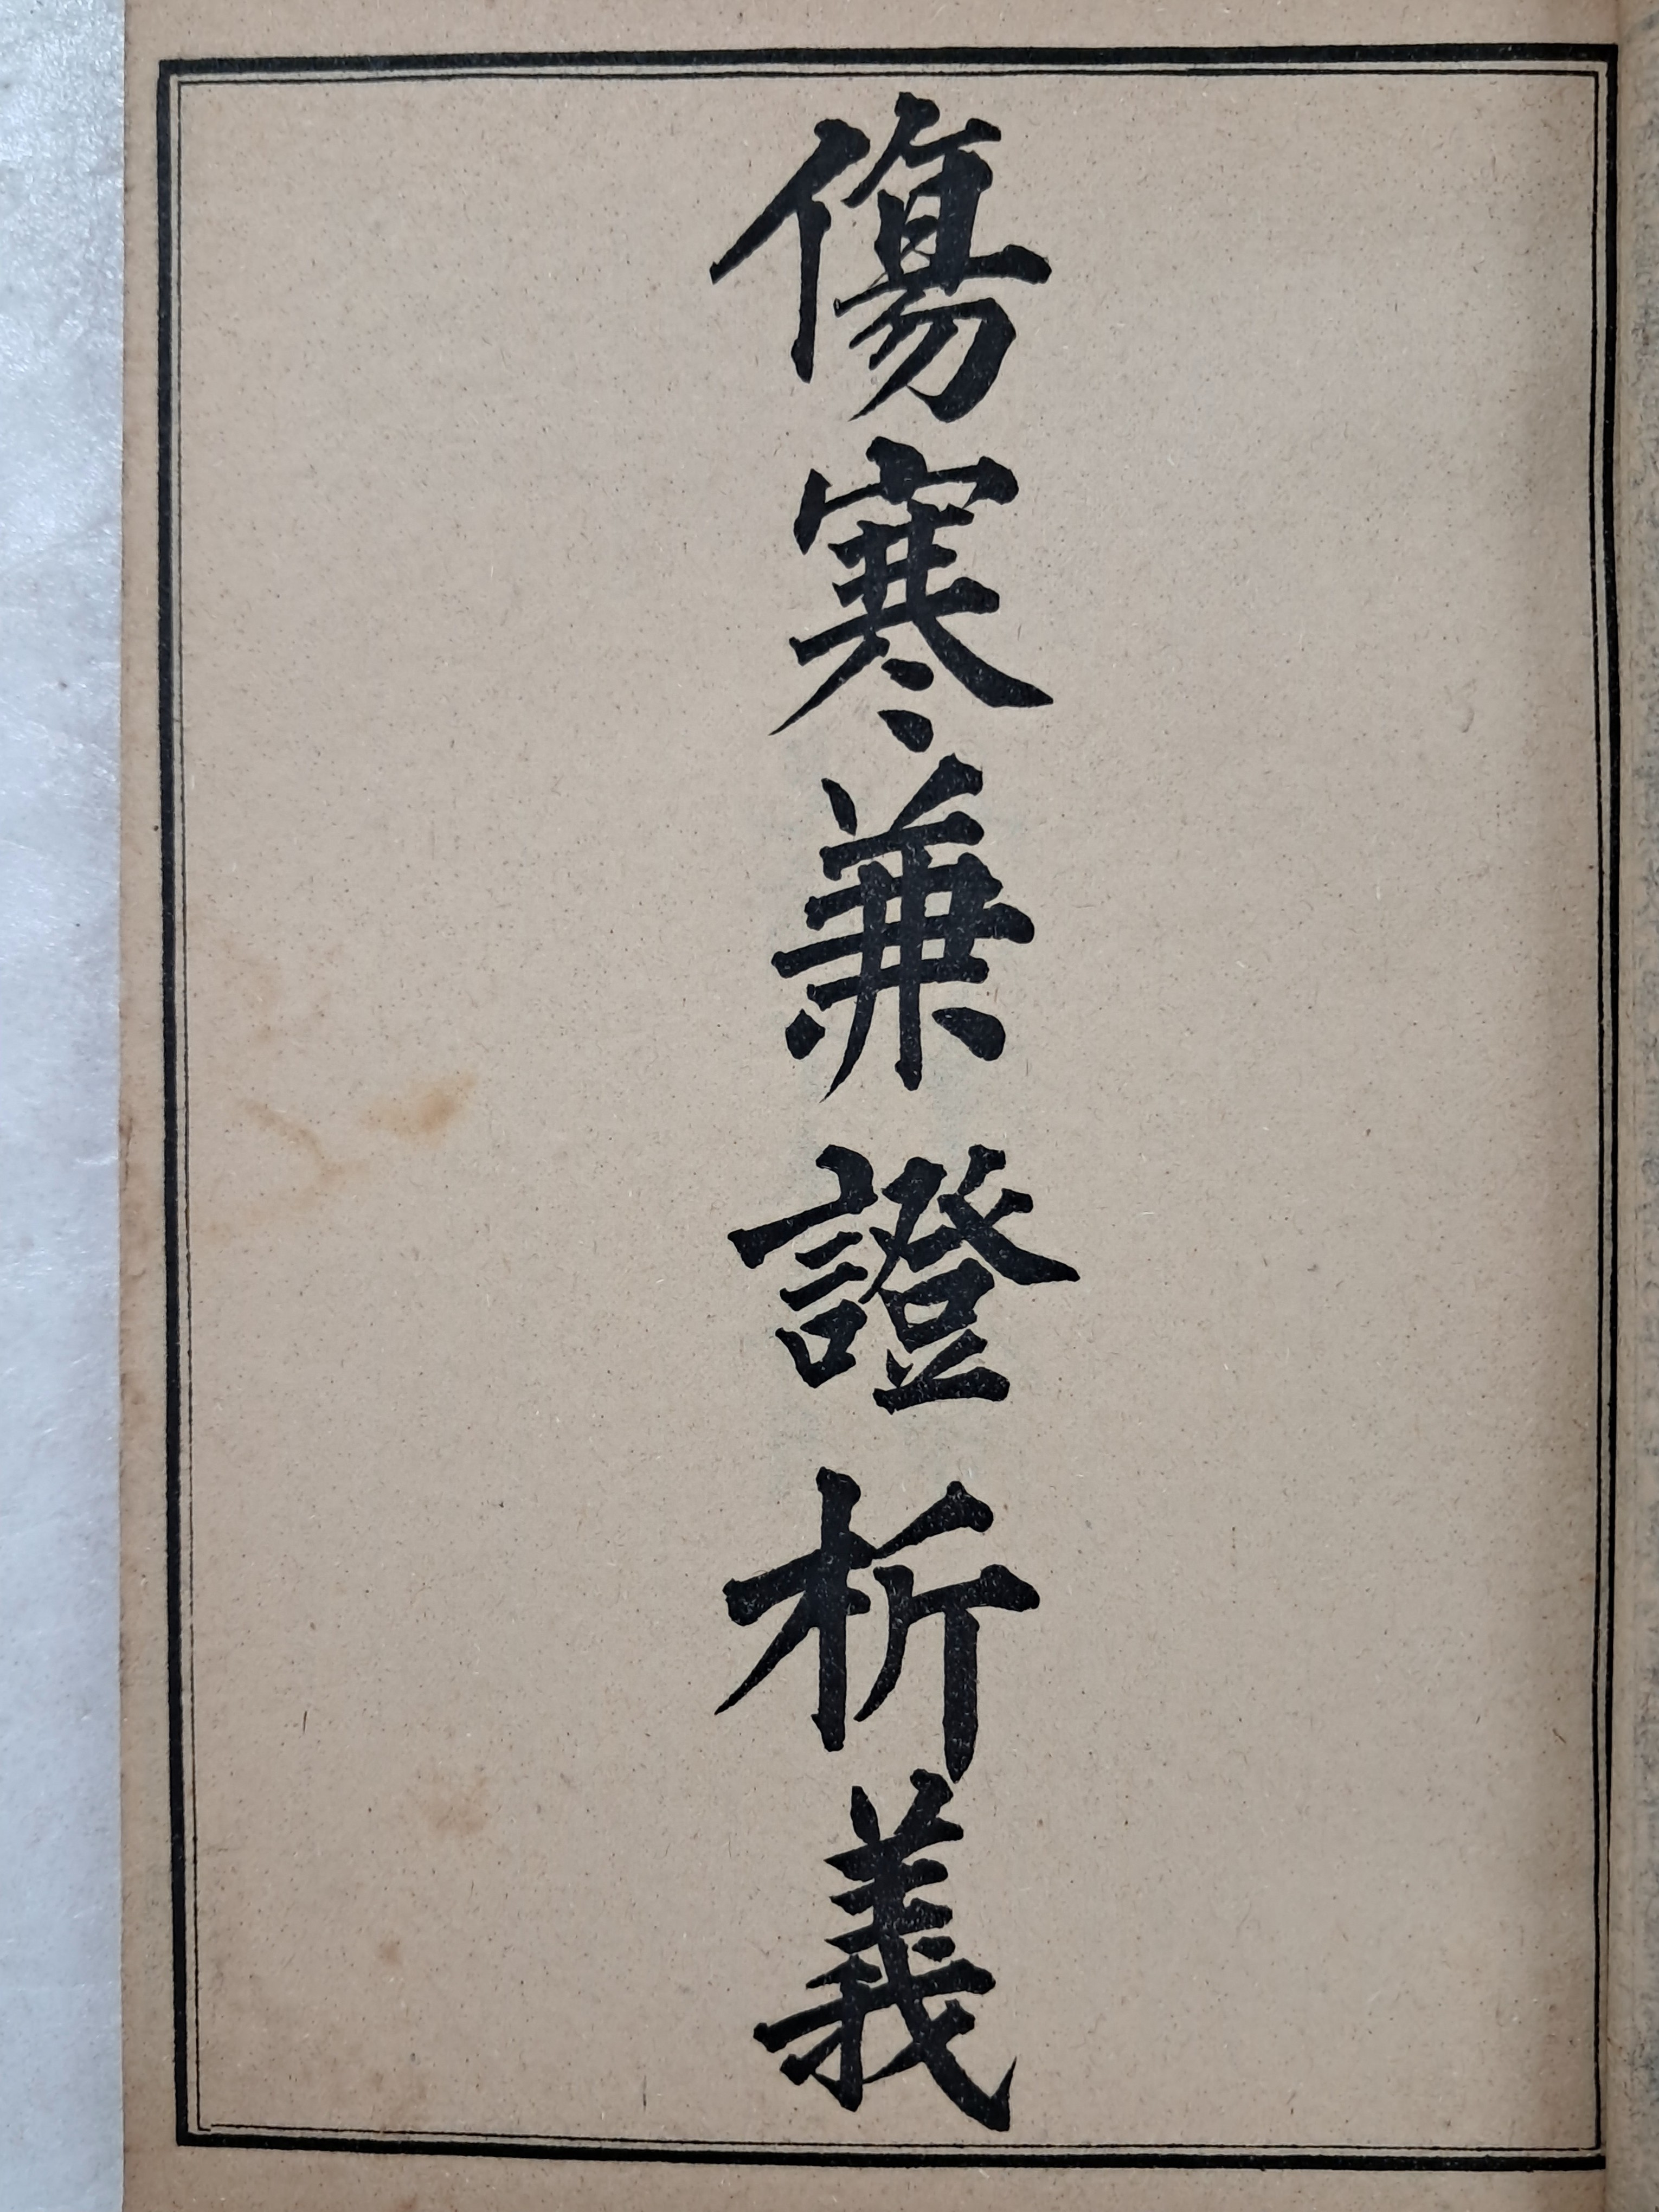 傷寒兼證析義